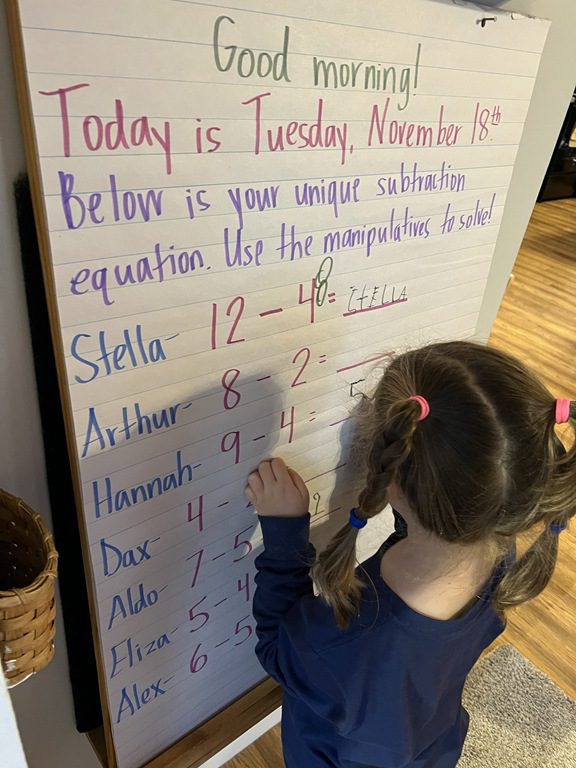 Good morning!
Today is Tuesday, November 18th.
Below is your unique subtraction
equation. Use the manipulatives to solve!
Stella- 12 - 4 8 = STELLA
Arthur- 8 - 2 =
Hannah- 9 - 4 = 5
Dax- 4 -
Aldo- 7 - 5 2
Eliza- 5 - 4
Alex- 6 - 5